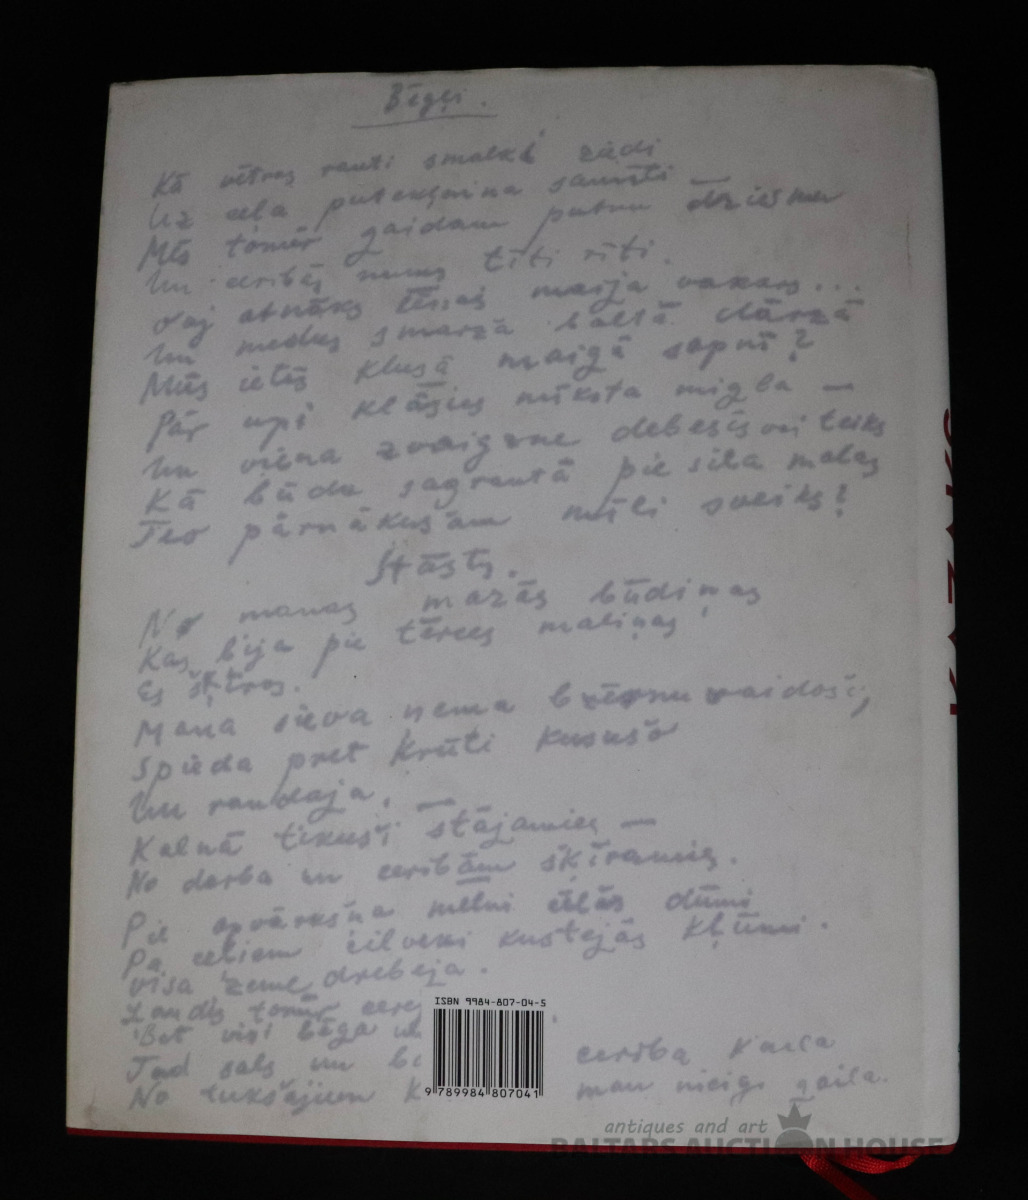 Bēgļi.
Kā vētras rauti smalki ziedi
Uz ceļa putekļaina
Mēs tomēr gaidam putnu dziesmu
Un cerības mums tīti rīti.
Vaj atnāks maija vakars...
Un medus smaržā baltā dārzā
Mūs ietīs klusā maigā sapnī?
Pār upi klāsies mīksta migla —
Un viena zvaigzne debesīs vai teiks
Kā būda sagrautā pie sila malas
Tev pārnākušam mīļi sveiks!
Stāsts.
No manas mazās būdiņas
Kas bija pie tērces maliņas
Es šķīros.
Mana sieva ņema bērnu vaidošo,
Spieda pret krūti kususo
Un raudaja.
Kalnā tikuši stājamies —
No darba un cerībām šķiramies.
Pie apvāršņa melni cēlās dūmi
Pa ceļiem cilveki kustejās kļūmi.
Visa zeme drebeja.
Ļaudis tomēr cerej
Bet visi bēga un
Tad sals un b cerība kaila
No tukšajiem k man nicīgi gaila.
ISBN 9984-807-04-5
9 789984 807041
antiques and art
BALTARS AUCTION HOUSE